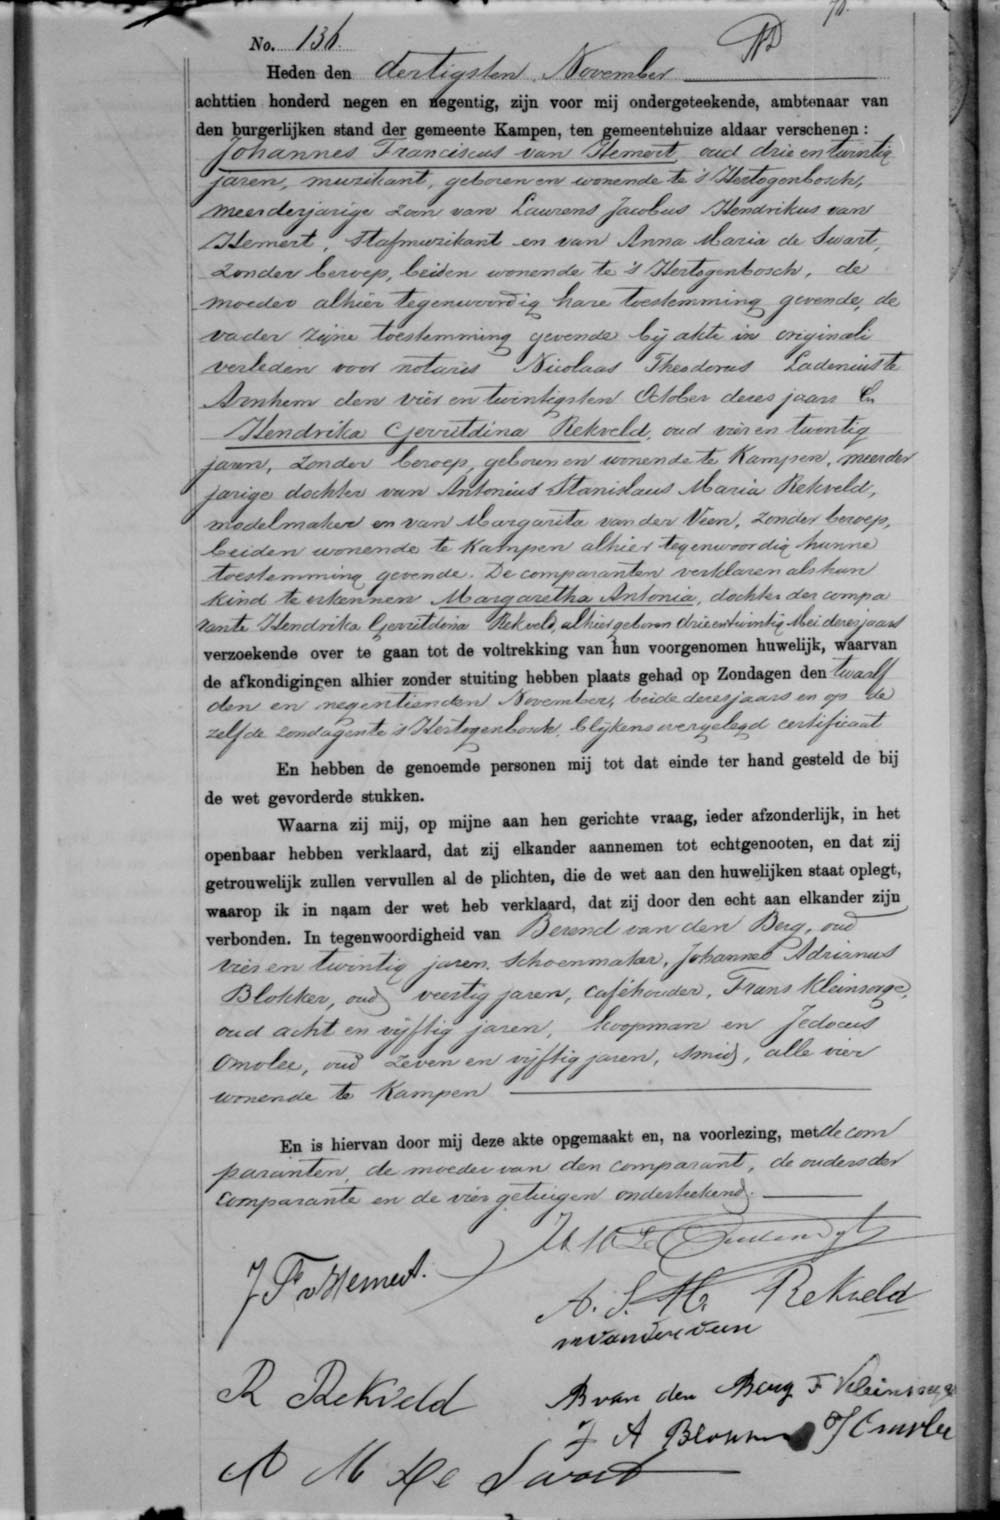 No. 136.
Heden den dertigsten November
achttien honderd negen en negentig, zijn voor mij ondergeteekende, ambtenaar van
den burgerlijken stand der gemeente Kampen, ten gemeentehuize aldaar verschenen:
Johannes Franciscus van Hemert, oud drie en twintig
jaren, muzikant, geboren en wonende te 's Hertogenbosch,
meerderjarige zoon van Laurens Jacobus Hendrikus van
Hemert, stafmuzikant en van Anna Maria de Swart,
zonder beroep, beiden wonende te 's Hertogenbosch, de
moeder alhier tegenwoordig hare toestemming gevende, de
vader zijne toestemming gevende bij akte in originali
verleden voor notaris Nicolaas Theodorus Ladenius te
Arnhem den vier en twintigsten October dezes jaars En
Hendrika Gerritdina Rekveld, oud vier en twintig
jaren, zonder beroep, geboren en wonende te Kampen, meerder
jarige dochter van Antonius Stanislaus Maria Rekveld,
modelmaker en van Margarita van der Veen, zonder beroep,
beiden wonende te Kampen alhier tegenwoordig hunne
toestemming gevende. De comparanten verklaren als hun
kind te erkennen Margaretha Antonia, dochter der compa
rante Hendrika Gerritdina Rekveld, alhier geboren drie en twintig Mei dezes jaars
verzoekende over te gaan tot de voltrekking van hun voorgenomen huwelijk, waarvan
de afkondigingen alhier zonder stuiting hebben plaats gehad op Zondagen den twaalf
den en negentienden November, beide dezes jaars en op de
zelfde zondagen te 's Hertogenbosch, blijkens overgelegd certificaat
En hebben de genoemde personen mij tot dat einde ter hand gesteld de bij
de wet gevorderde stukken.
Waarna zij mij, op mijne aan hen gerichte vraag, ieder afzonderlijk, in het
openbaar hebben verklaard, dat zij elkander aannemen tot echtgenooten, en dat zij
getrouwelijk zullen vervullen al de plichten, die de wet aan den huwelijken staat oplegt,
waarop ik in naam der wet heb verklaard, dat zij door den echt aan elkander zijn
verbonden. In tegenwoordigheid van Berend van den Berg, oud
vier en twintig jaren, schoenmaker, Johannes Adrianus
Blokker, oud veertig jaren, caféhouder, Frans Kleinsorge,
oud acht en vijftig jaren, koopman en Jedocus
Omolee, oud zeven en vijftig jaren, smid, alle vier
wonende te Kampen
En is hiervan door mij deze akte opgemaakt en, na voorlezing, met de com
paranten, de moeder van den comparant, de ouders der
comparante en de vier getuigen onderteekend.
J F v Hemert.
A. S. M. Rekveld
m van der veen
R Rekveld
B van den Berg F Kleinsorge
J A Blokker J Omolee
A M de Swart